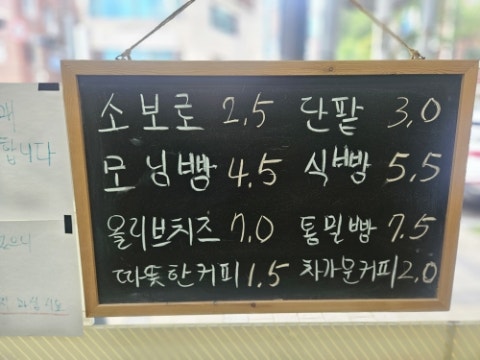 소보로 2,5 단팥 3,0
모닝빵 4.5 식빵 5,5
올리브치즈 7.0 통밀빵 7.5
따뜻한커피 1.5 차가운커피 2.0
합니다